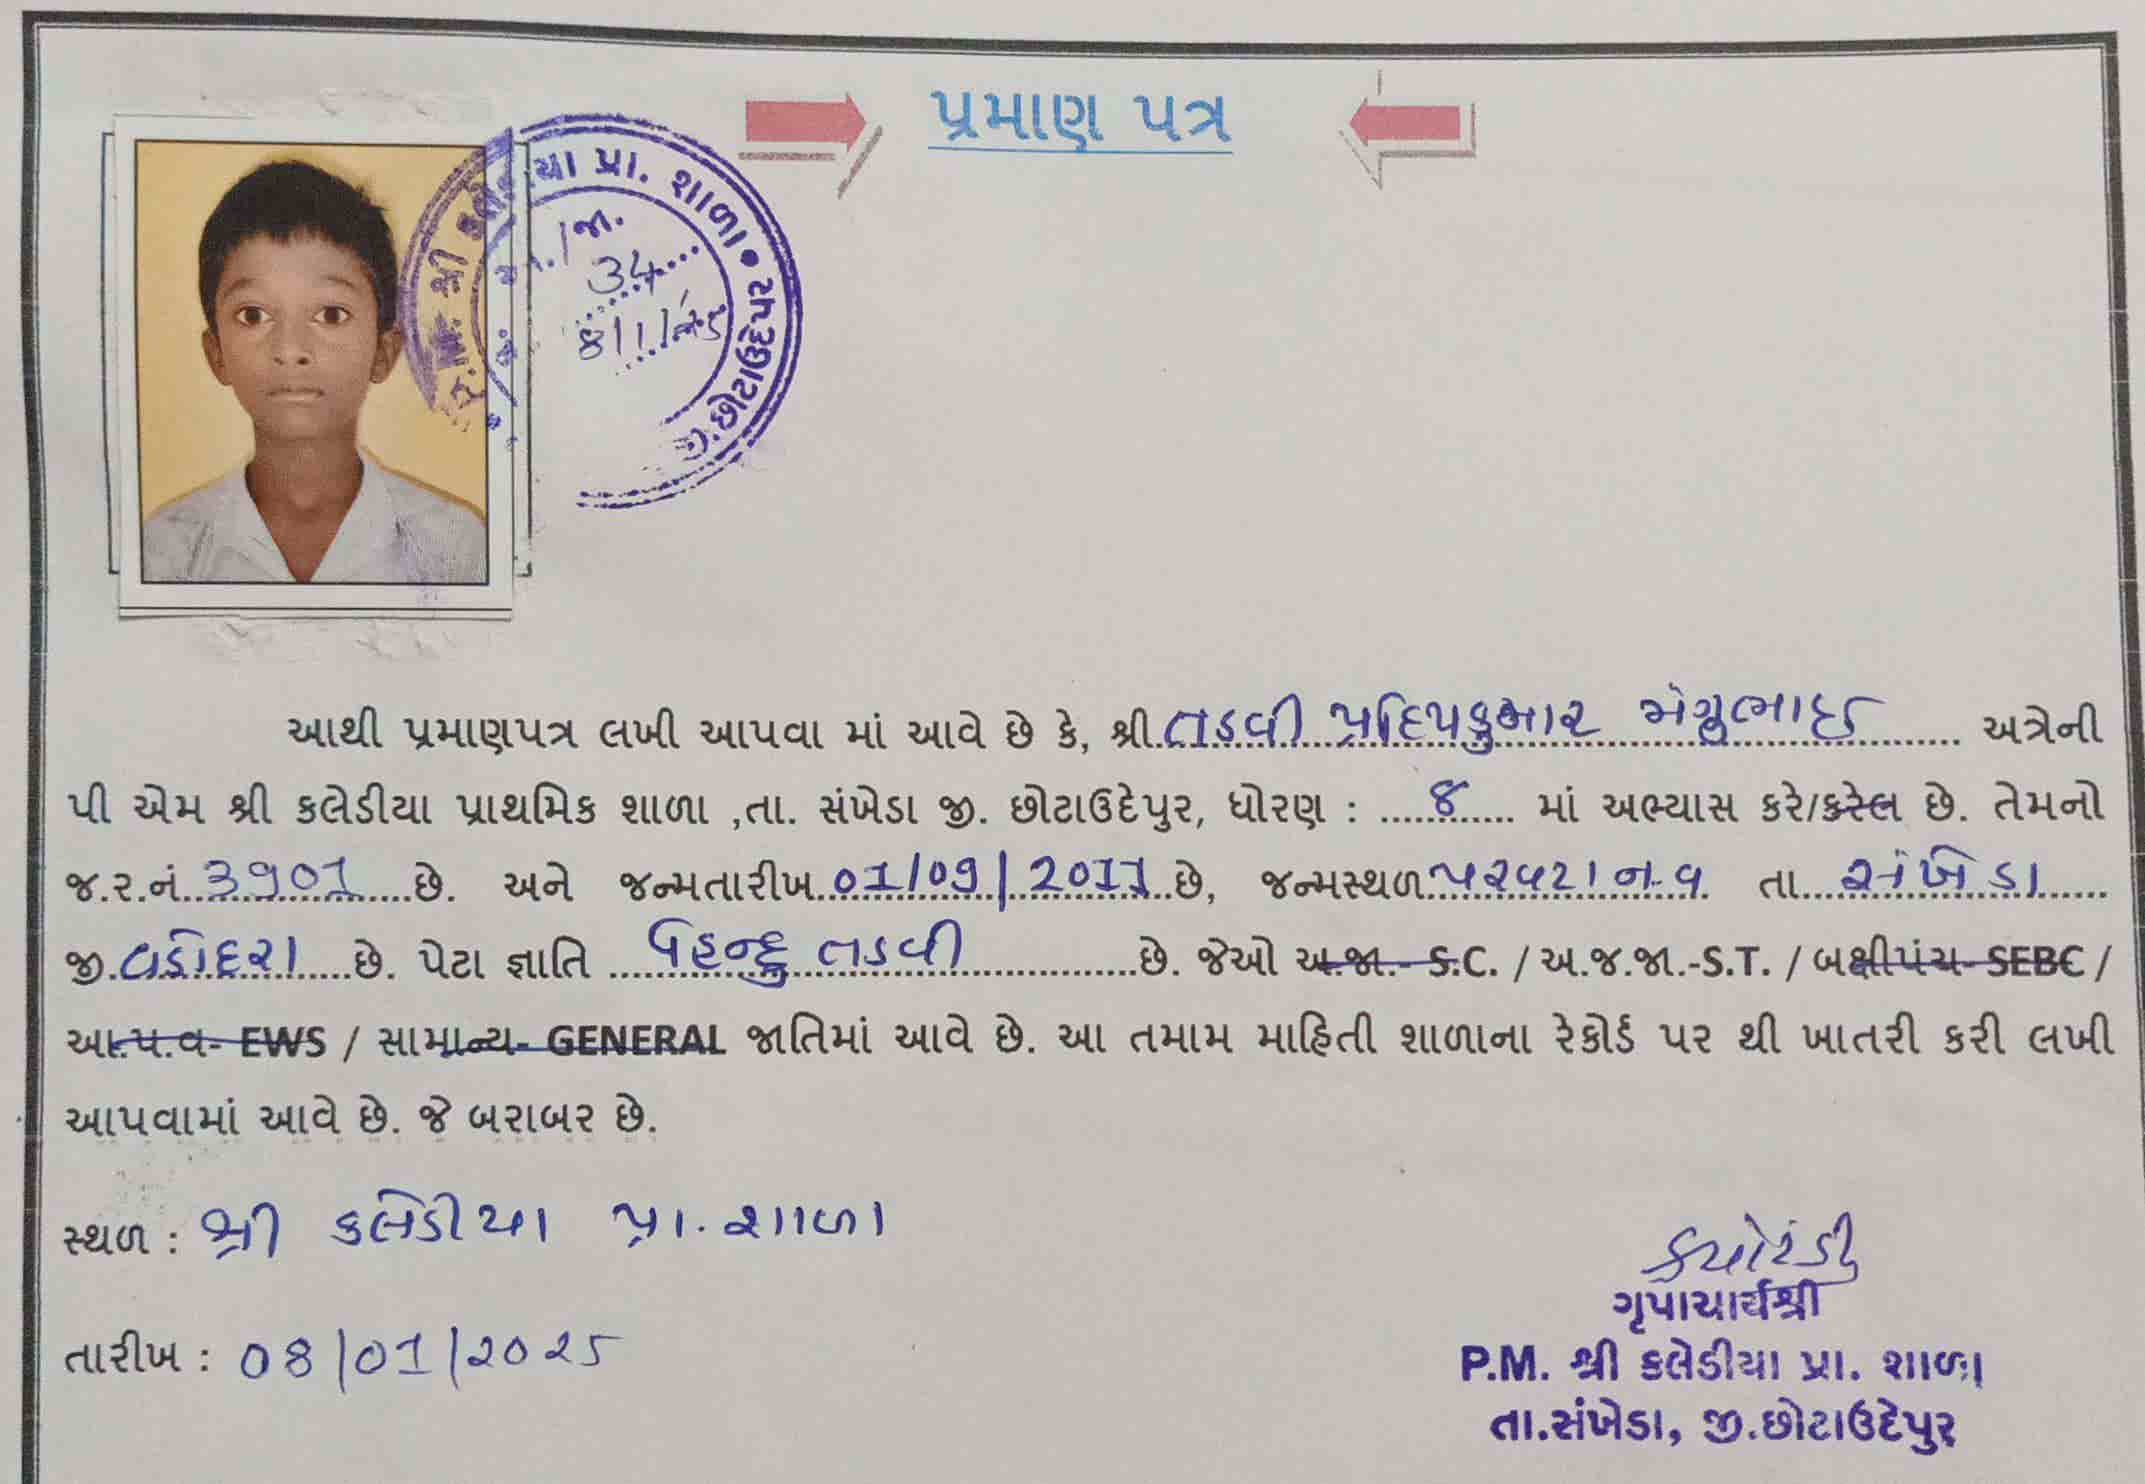 પ્રમાણ પત્ર
શ્રી કલેડીયા પ્રા. શાળા • છોટાઉદેપુર
જા.
34
આથી પ્રમાણપત્ર લખી આપવા માં આવે છે કે, શ્રી.તડવી પ્રદિપકુમાર મેગુભાઈ અત્રેની
પી એમ શ્રી કલેડીયા પ્રાથમિક શાળા ,તા. સંખેડા જી. છોટાઉદેપુર, ધોરણ : ....૪.... માં અભ્યાસ કરે/કરેલ છે. તેમનો
જ.ર.નં.3901.છે. અને જન્મતારીખ.01/09/2011.છે, જન્મસ્થળ. તા...સંખેડા......
જી.વડોદરા.....છે. પેટા જ્ઞાતિ ....હિન્દુ તડવી............છે. જેઓ અ.જા.- S.C. / અ.જ.જા.-S.T. / બક્ષીપંચ- SEBC /
આ.પ.વ- EWS / સામાન્ય- GENERAL જાતિમાં આવે છે. આ તમામ માહિતી શાળાના રેકોર્ડ પર થી ખાતરી કરી લખી
આપવામાં આવે છે. જે બરાબર છે.
સ્થળ : શ્રી કલેડીયા પ્રા. શાળા
તારીખ : 08/01/2025
P.M. શ્રી કલેડીયા પ્રા. શાળા
તા.સંખેડા, જી.છોટાઉદેપુર